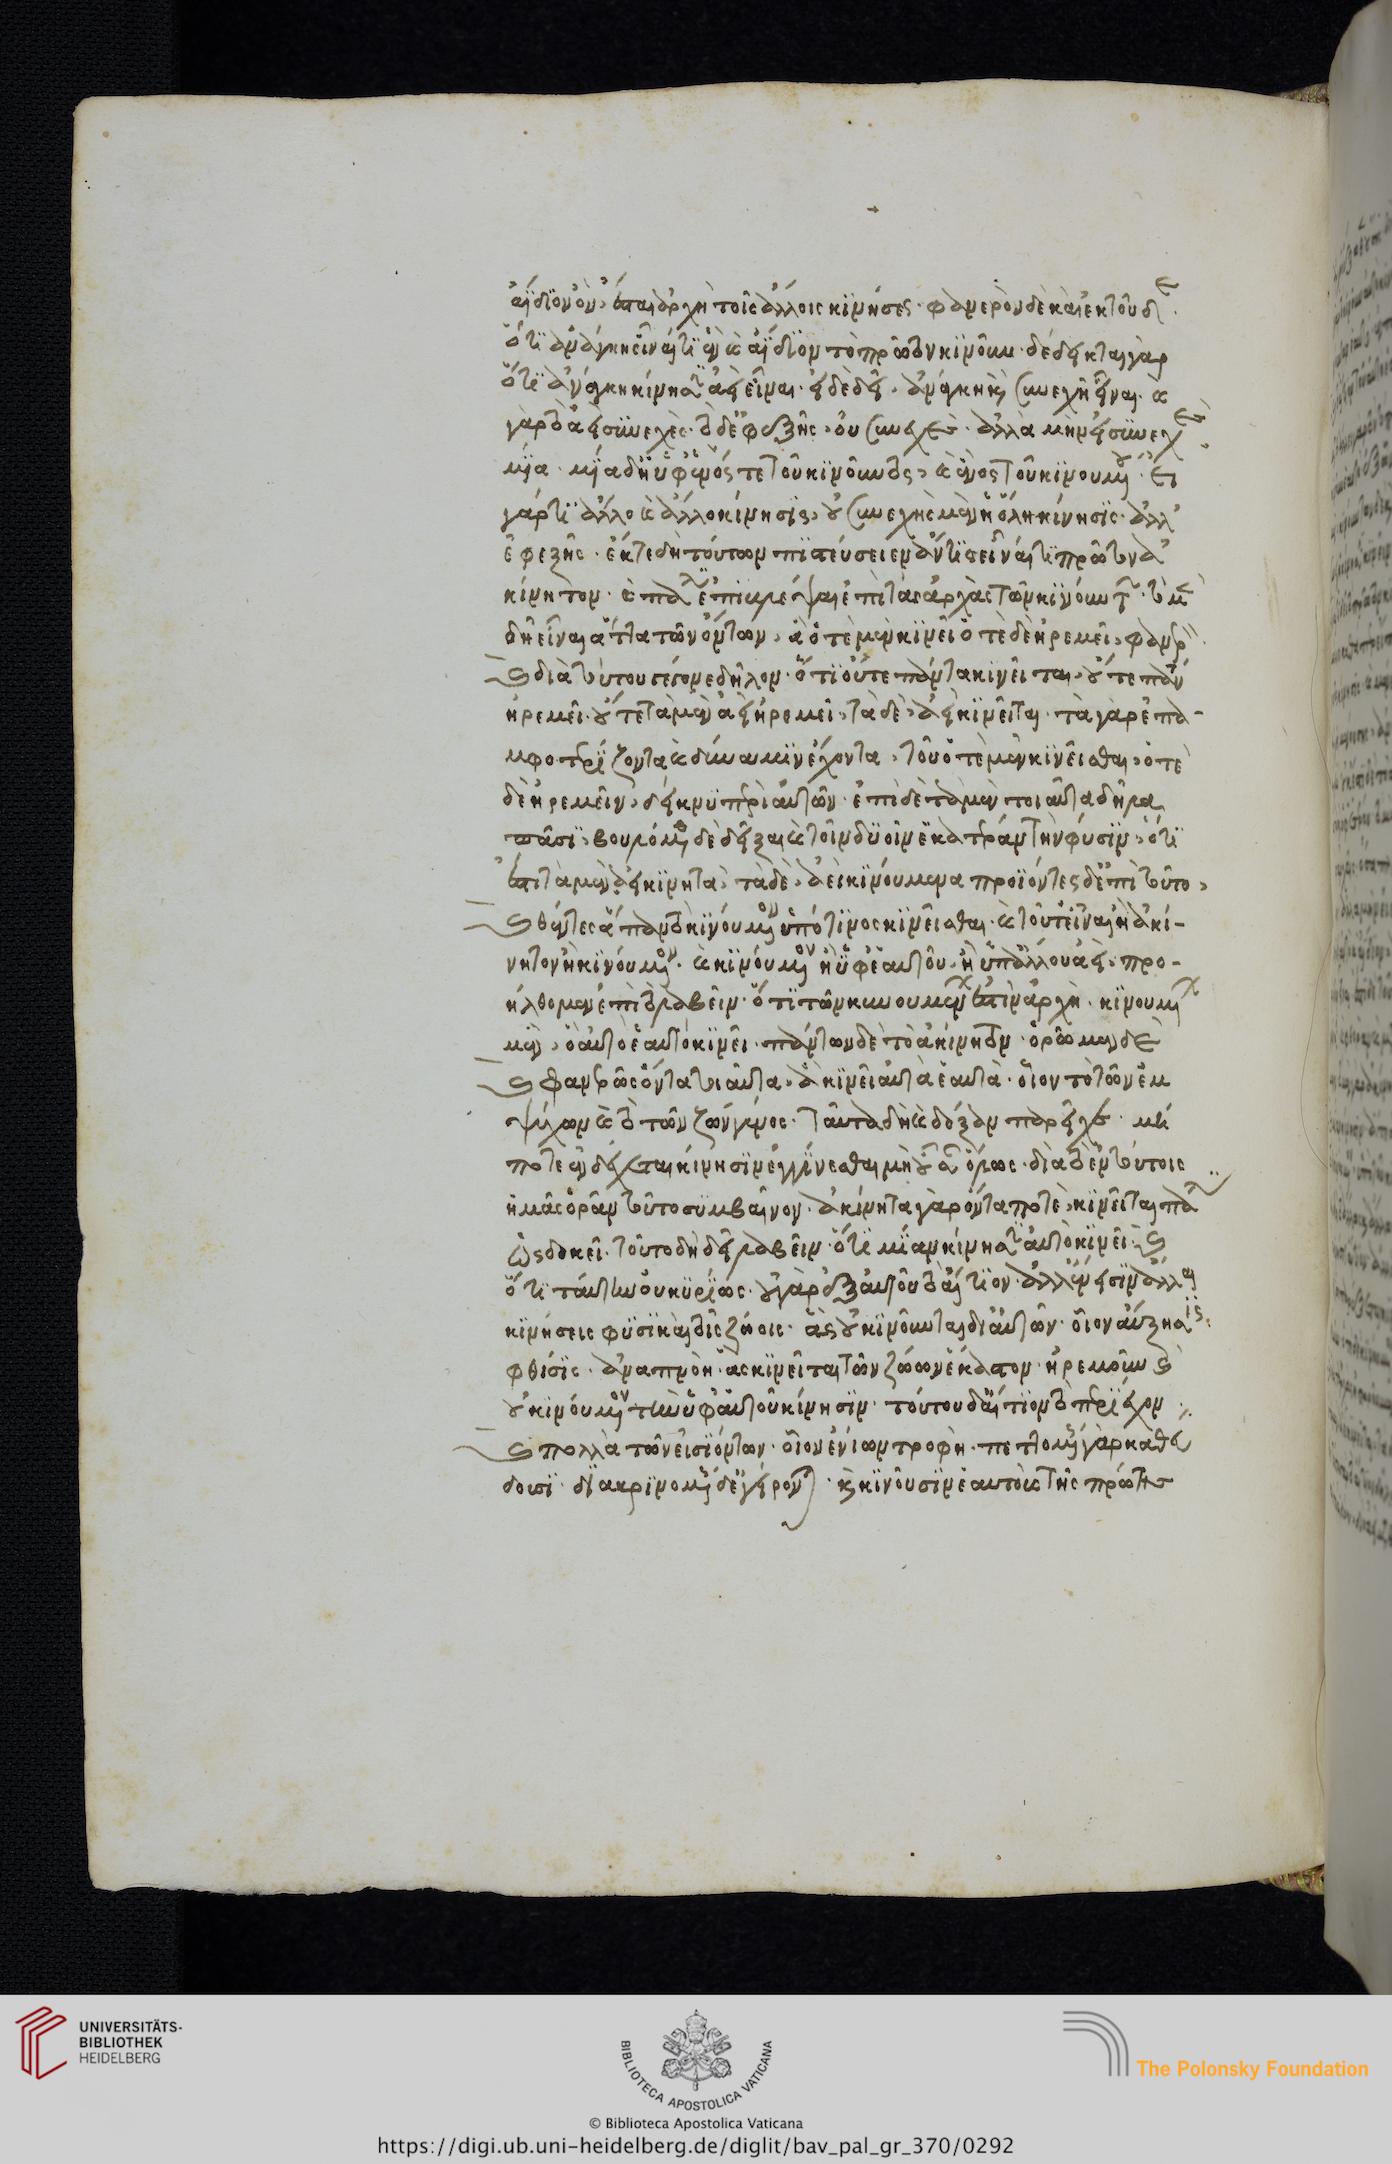 ἀΐδιον ὂν, ἔσται ἀρχὴ τοῖς ἄλλοις κινήσεως· φανερὸν δὲ καὶ ἐκ τοῦδε·
ὅτι ἀνάγκη εἶναί τι ἓν καὶ ἀΐδιον τὸ πρῶτον κινοῦν· δέδεικται γὰρ
ὅτι ἀνάγκη κίνησιν ἀεὶ εἶναι· εἰ δὲ ἀεὶ, ἀνάγκη καὶ συνεχῆ εἶναι· καὶ
γὰρ τὸ ἀεὶ συνεχὲς· τὸ δ' ἐφεξῆς, οὐ συνεχὲς· ἀλλὰ μὴν εἰ συνεχὴς·
μία· μία δὴ ἡ ὑφ' ἑνός τε τοῦ κινοῦντος, καὶ ἑνὸς τοῦ κινουμένου· εἰ
γάρ τι ἄλλο καὶ ἄλλο κίνησις, οὐ συνεχὴς μὲν ἡ ὅλη κίνησις· ἀλλ'
ἐφεξῆς· ἔκ τε δὴ τούτων πιστεύσειεν ἄν τις εἶναί τι πρῶτον ἀ
κίνητον· καὶ πάλιν ἐπιβλέψαι ἐπὶ τὰς ἀρχὰς τῶν κινούντων· τὸ μὲν
δὴ εἶναι ἄττα τῶν ὄντων, ἃ ὁτὲ μὲν κινεῖ ὁτὲ δὲ ἠρεμεῖ, φανερὸν·
καὶ διὰ τούτου γέγονε δῆλον· ὅτι οὔτε πάντα κινεῖται, οὔτε πάντα
ἠρεμεῖ· οὔτε τὰ μὲν ἀεὶ ἠρεμεῖ, τὰ δὲ, ἀεὶ κινεῖται· τὰ γὰρ ἐπα-
μφοτερίζοντα καὶ δύναμιν ἔχοντα, τοῦ ὁτὲ μὲν κινεῖσθαι, ὁτὲ
δὲ ἠρεμεῖν, δείκνυσι περὶ αὐτῶν· ἐπεὶ δὲ τὰ μὲν τοιαῦτα δῆλα
πᾶσι, βουλόμεθα δὲ δεῖξαι καὶ τοῖν δυοῖν ἑκατέραν τὴν φύσιν, ὅτι
ἔστι τὰ μὲν ἀεὶ ἀκίνητα, τὰ δὲ, ἀεὶ κινούμενα προϊόντες δ' ἐπὶ τοῦτο,
καὶ θέντες ἅπαν τὸ κινούμενον ὑπό τινος κινεῖσθαι· καὶ τοῦτ' εἶναι ἢ ἀκί-
νητον ἢ κινούμενον· καὶ κινούμενον ἢ ὑφ' ἑαυτοῦ, ἢ ὑπ' ἄλλου ἀεὶ, προ-
ήλθομεν ἐπὶ τὸ λαβεῖν· ὅτι τῶν κινουμένων ἐστὶν ἀρχὴ· κινουμένων
μὲν, ὃ αὐτὸ ἑαυτὸ κινεῖ· πάντων δὲ τὸ ἀκίνητον· ὁρῶμεν δὲ
καὶ φανερῶς ὄντα τοιαῦτα, ἃ κινεῖ αὐτὰ ἑαυτὰ· οἷον τὸ τῶν ἐμ
ψύχων καὶ τὸ τῶν ζώων γένος· ταῦτα δὴ καὶ δόξαν παρεῖχε· μή
ποτε ἐνδέχεται κίνησιν ἐγγίνεσθαι μὴ οὖσαν ὅλως· διὰ τὸ ἐν τούτοις
ἡμᾶς ὁρᾶν τοῦτο συμβαῖνον· ἀκίνητα γὰρ ὄντα ποτὲ, κινεῖται πάλιν
ὡς δοκεῖ· τοῦτο δὴ δεῖ λαβεῖν· ὅτι μίαν κίνησιν αὐτὸ κινεῖ· καὶ
ὅτι ταύτην οὐ κυρίως· οὐ γὰρ ἐξ αὐτοῦ τὸ αἴτιον· ἀλλ' ἔνεισιν ἄλλαι
κινήσεις φυσικαὶ τοῖς ζώοις· ἃς οὐ κινοῦνται δι' αὐτῶν· οἷον αὔξησις·
φθίσις· ἀναπνοὴ· ἃς κινεῖται τῶν ζώων ἕκαστον· ἠρεμοῦν καὶ
οὐ κινούμενον τὴν ὑφ' αὑτοῦ κίνησιν· τούτου δ' αἴτιον τὸ περιέχον·
καὶ πολλὰ τῶν εἰσιόντων· οἷον ἐνίων τροφὴ· πεττομένης γὰρ καθεύ
δουσι· διακρινομένης δ' ἐγείρονται· καὶ κινοῦσιν ἑαυτοὺς τῆς πρώτης
UNIVERSITÄTS-
BIBLIOTHEK
HEIDELBERG
BIBLIOTECA APOSTOLICA VATICANA
The Polonsky Foundation
© Biblioteca Apostolica Vaticana
https://digi.ub.uni-heidelberg.de/diglit/bav_pal_gr_370/0292